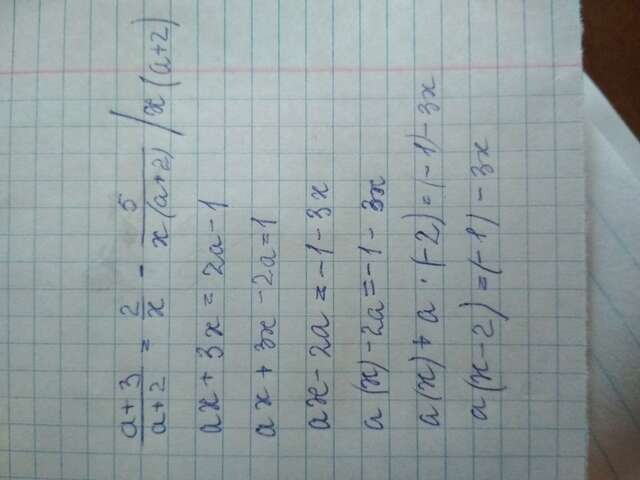 (a+3)/(a+2) = 2/x - 5/(x(a+2)) / x(a+2)
ax + 3x = 2a - 1
ax + 3x - 2a = 1
ax - 2a = -1 - 3x
a(x) - 2a = -1 - 3x
a(x) + a · (-2) = (-1) - 3x
a(x-2) = (-1) - 3x